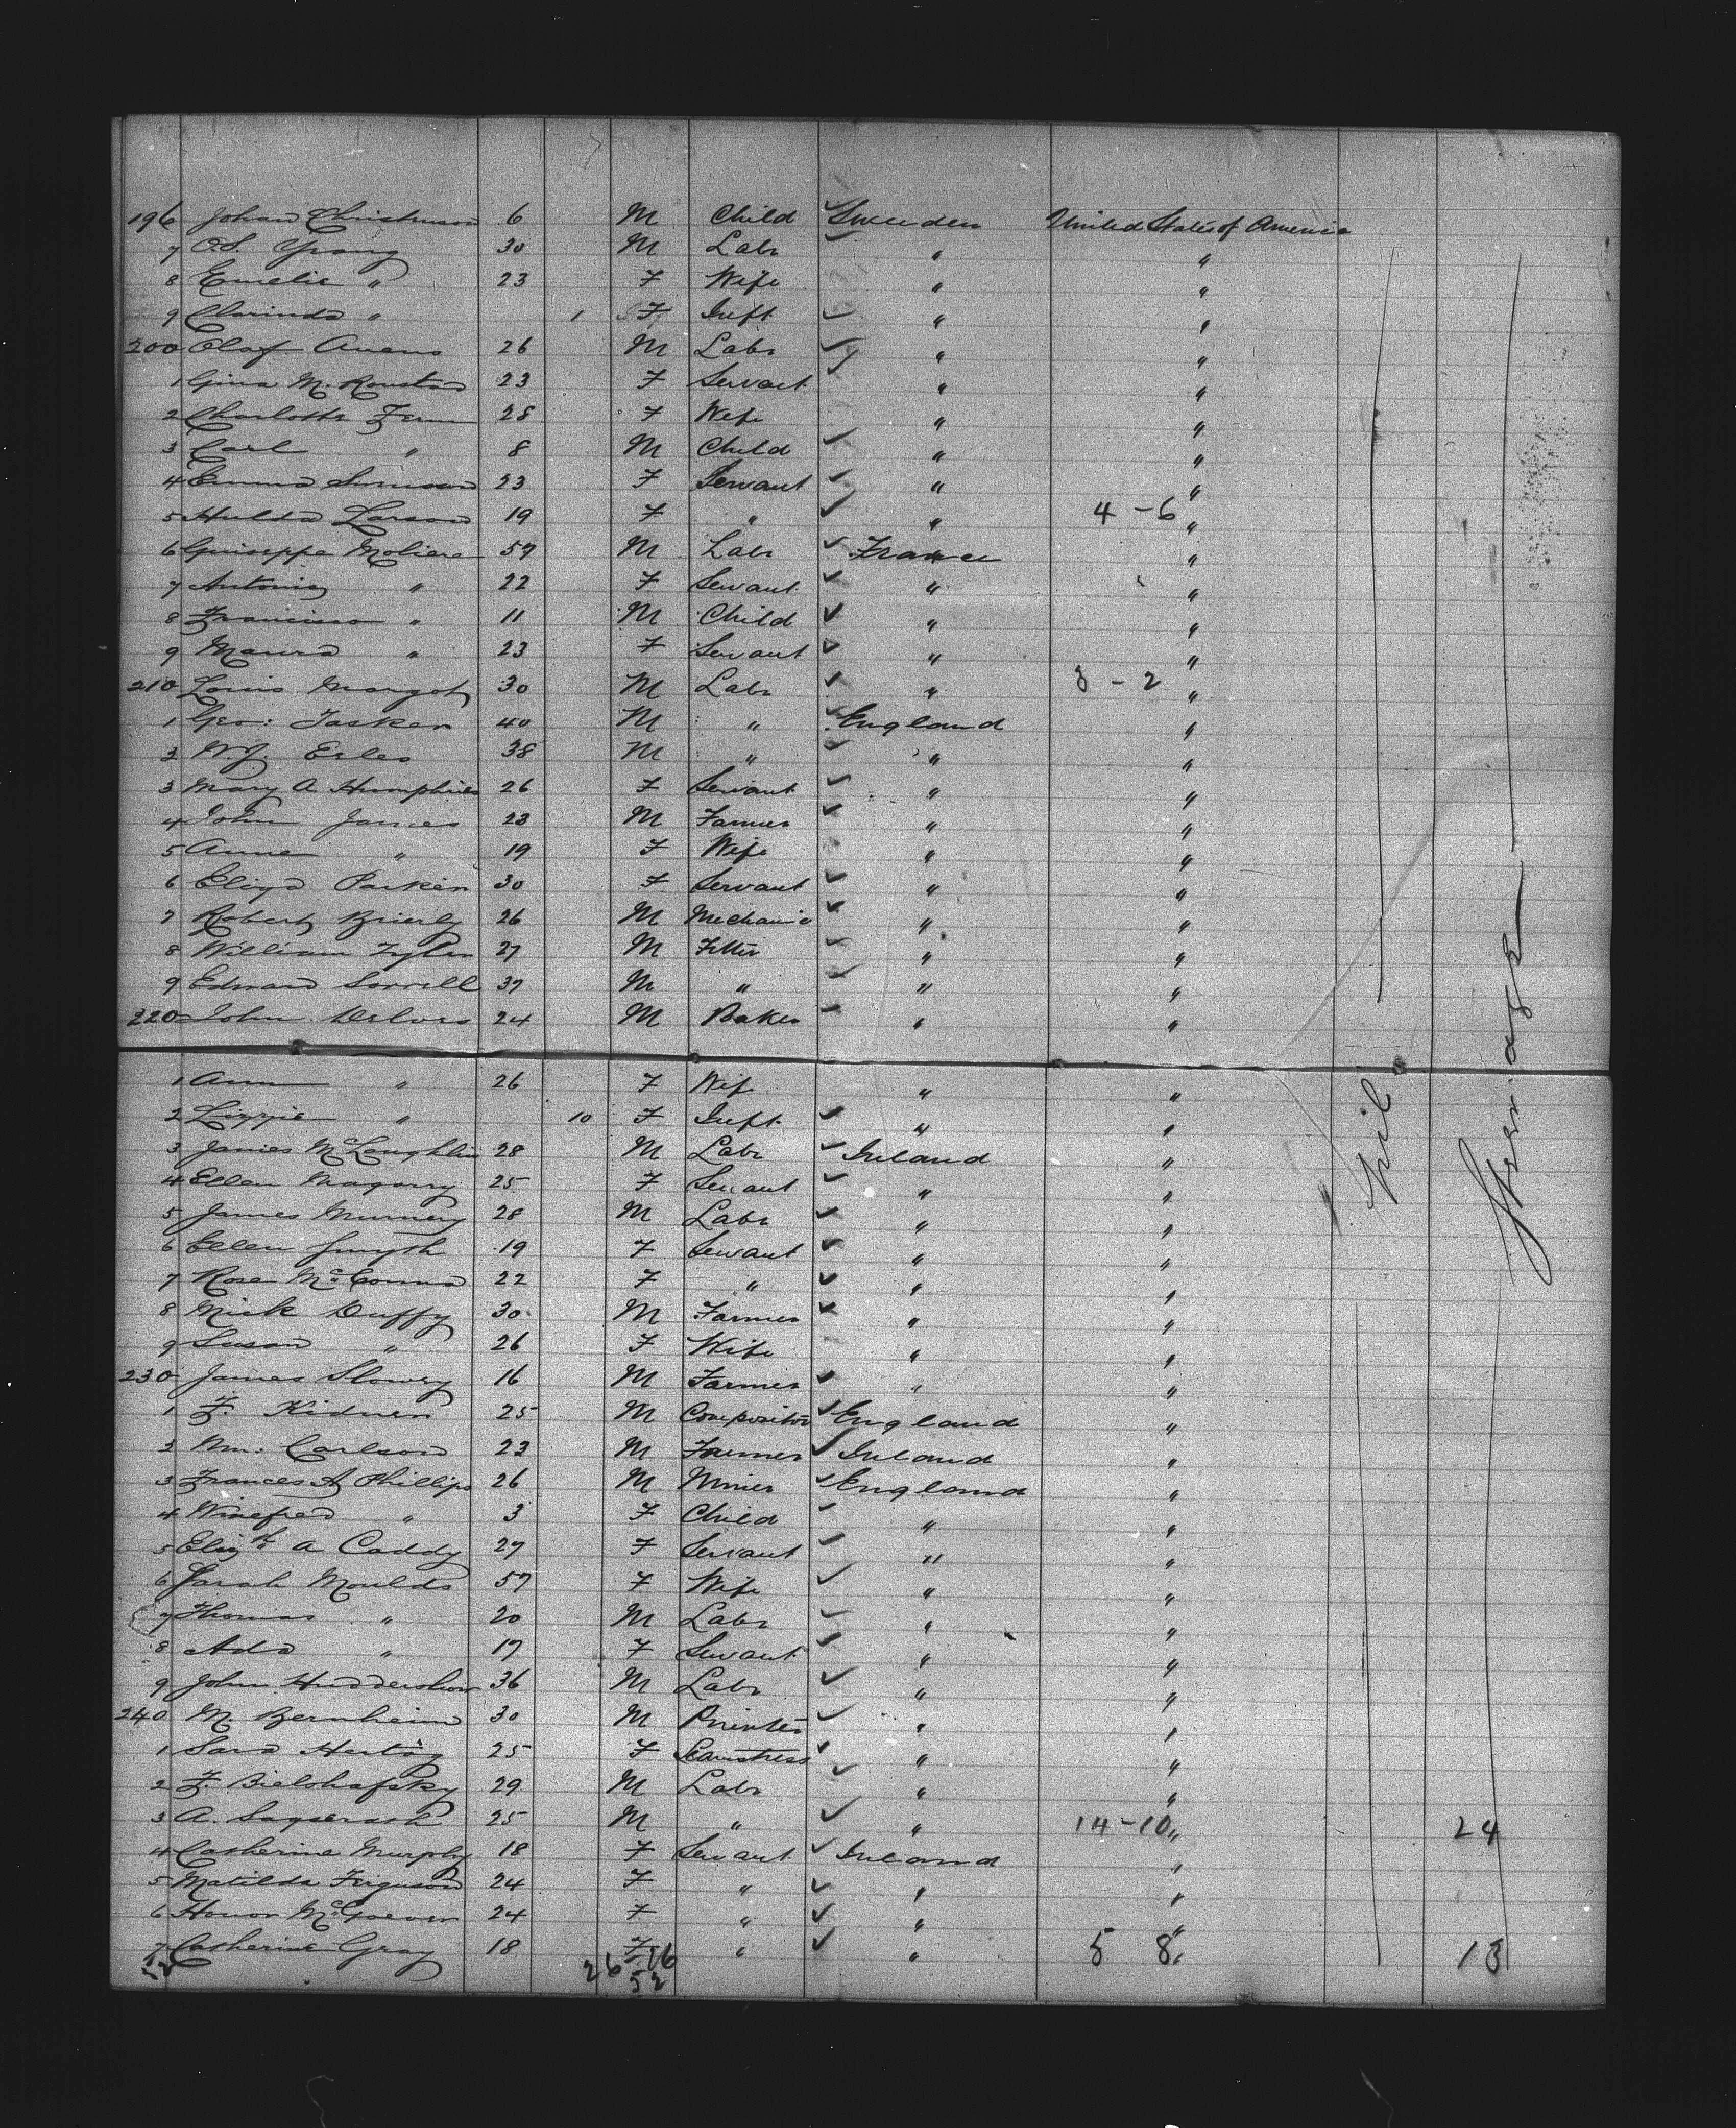 196 Johan Christenson 6 M Child Sweden United States of America
7 O.S. Young 30 M Labr " "
8 Emelie " 23 F Wife " "
9 Clarinda " 1 F Inft " "
200 Olaf Auens 26 M Labr " "
1 Gina M. 23 F Servant " "
2 Charlotte 28 F Wife " "
3 Carl " 8 M Child " "
4 Emma 23 F Servant " "
5 Hulda Larson 19 F " " 4 - 6 "
6 Guiseppe Moliera 57 M Labr France "
7 Antonia " 22 F Servant " "
8 Francisco " 11 M Child " "
9 Maura " 23 F Servant " "
210 Louis Margot 30 M Labr " 3 - 2 "
1 Geo: Tasker 40 M " England "
2 W.J. Erles 38 M " " "
3 Mary A Humphries 26 F Servant " "
4 John James 23 M Farmer " "
5 Anne " 19 F Wife " "
6 Eliza Parker 30 F Servant " "
7 Robert Brierly 26 M Mechanic " "
8 William Tyler 27 M Fitter " "
9 Edward Sorrell 37 M " " "
220 John Delves 24 M Baker " "
1 Ann " 26 F Wife " "
2 Lizzie " 10 F Inft " "
3 James McLoughlin 28 M Labr Ireland "
4 Ellen Magarry 25 F Servant " "
5 James Murney 28 M Labr " "
6 Ellen Smyth 19 F Servant " "
7 Rose McConna 22 F " " "
8 Mick Duffy 30 M Farmer " "
9 Susan " 26 F Wife " "
230 James Slowey 16 M Farmer " "
1 F. Kidner 25 M Compositor England "
2 Wm. Carlson 23 M Farmer Ireland "
3 Frances A Phillips 26 M Miner England "
4 Winefred " 3 F Child " "
5 Elizth A Caddy 27 F Servant " "
6 Sarah Moulds 57 F Wife " "
7 Thomas " 20 M Labr " "
8 Ada " 17 F Servant " "
9 John 36 M Labr " "
240 M. Bernheim 30 M Printer " "
1 Sara Hertog 25 F Seamstress " "
2 F. Bielohafsky 29 M Labr " "
3 A. 25 M " " 14 - 10 " 24
4 Catherine Murphy 18 F Servant Ireland "
5 Matilda Ferguson 24 F " " "
6 Honor McGoevan 24 F " " "
7 Catherine Gray 18 F " " 5 8 " 13
52 26 - 26
52
Nil
Steerage